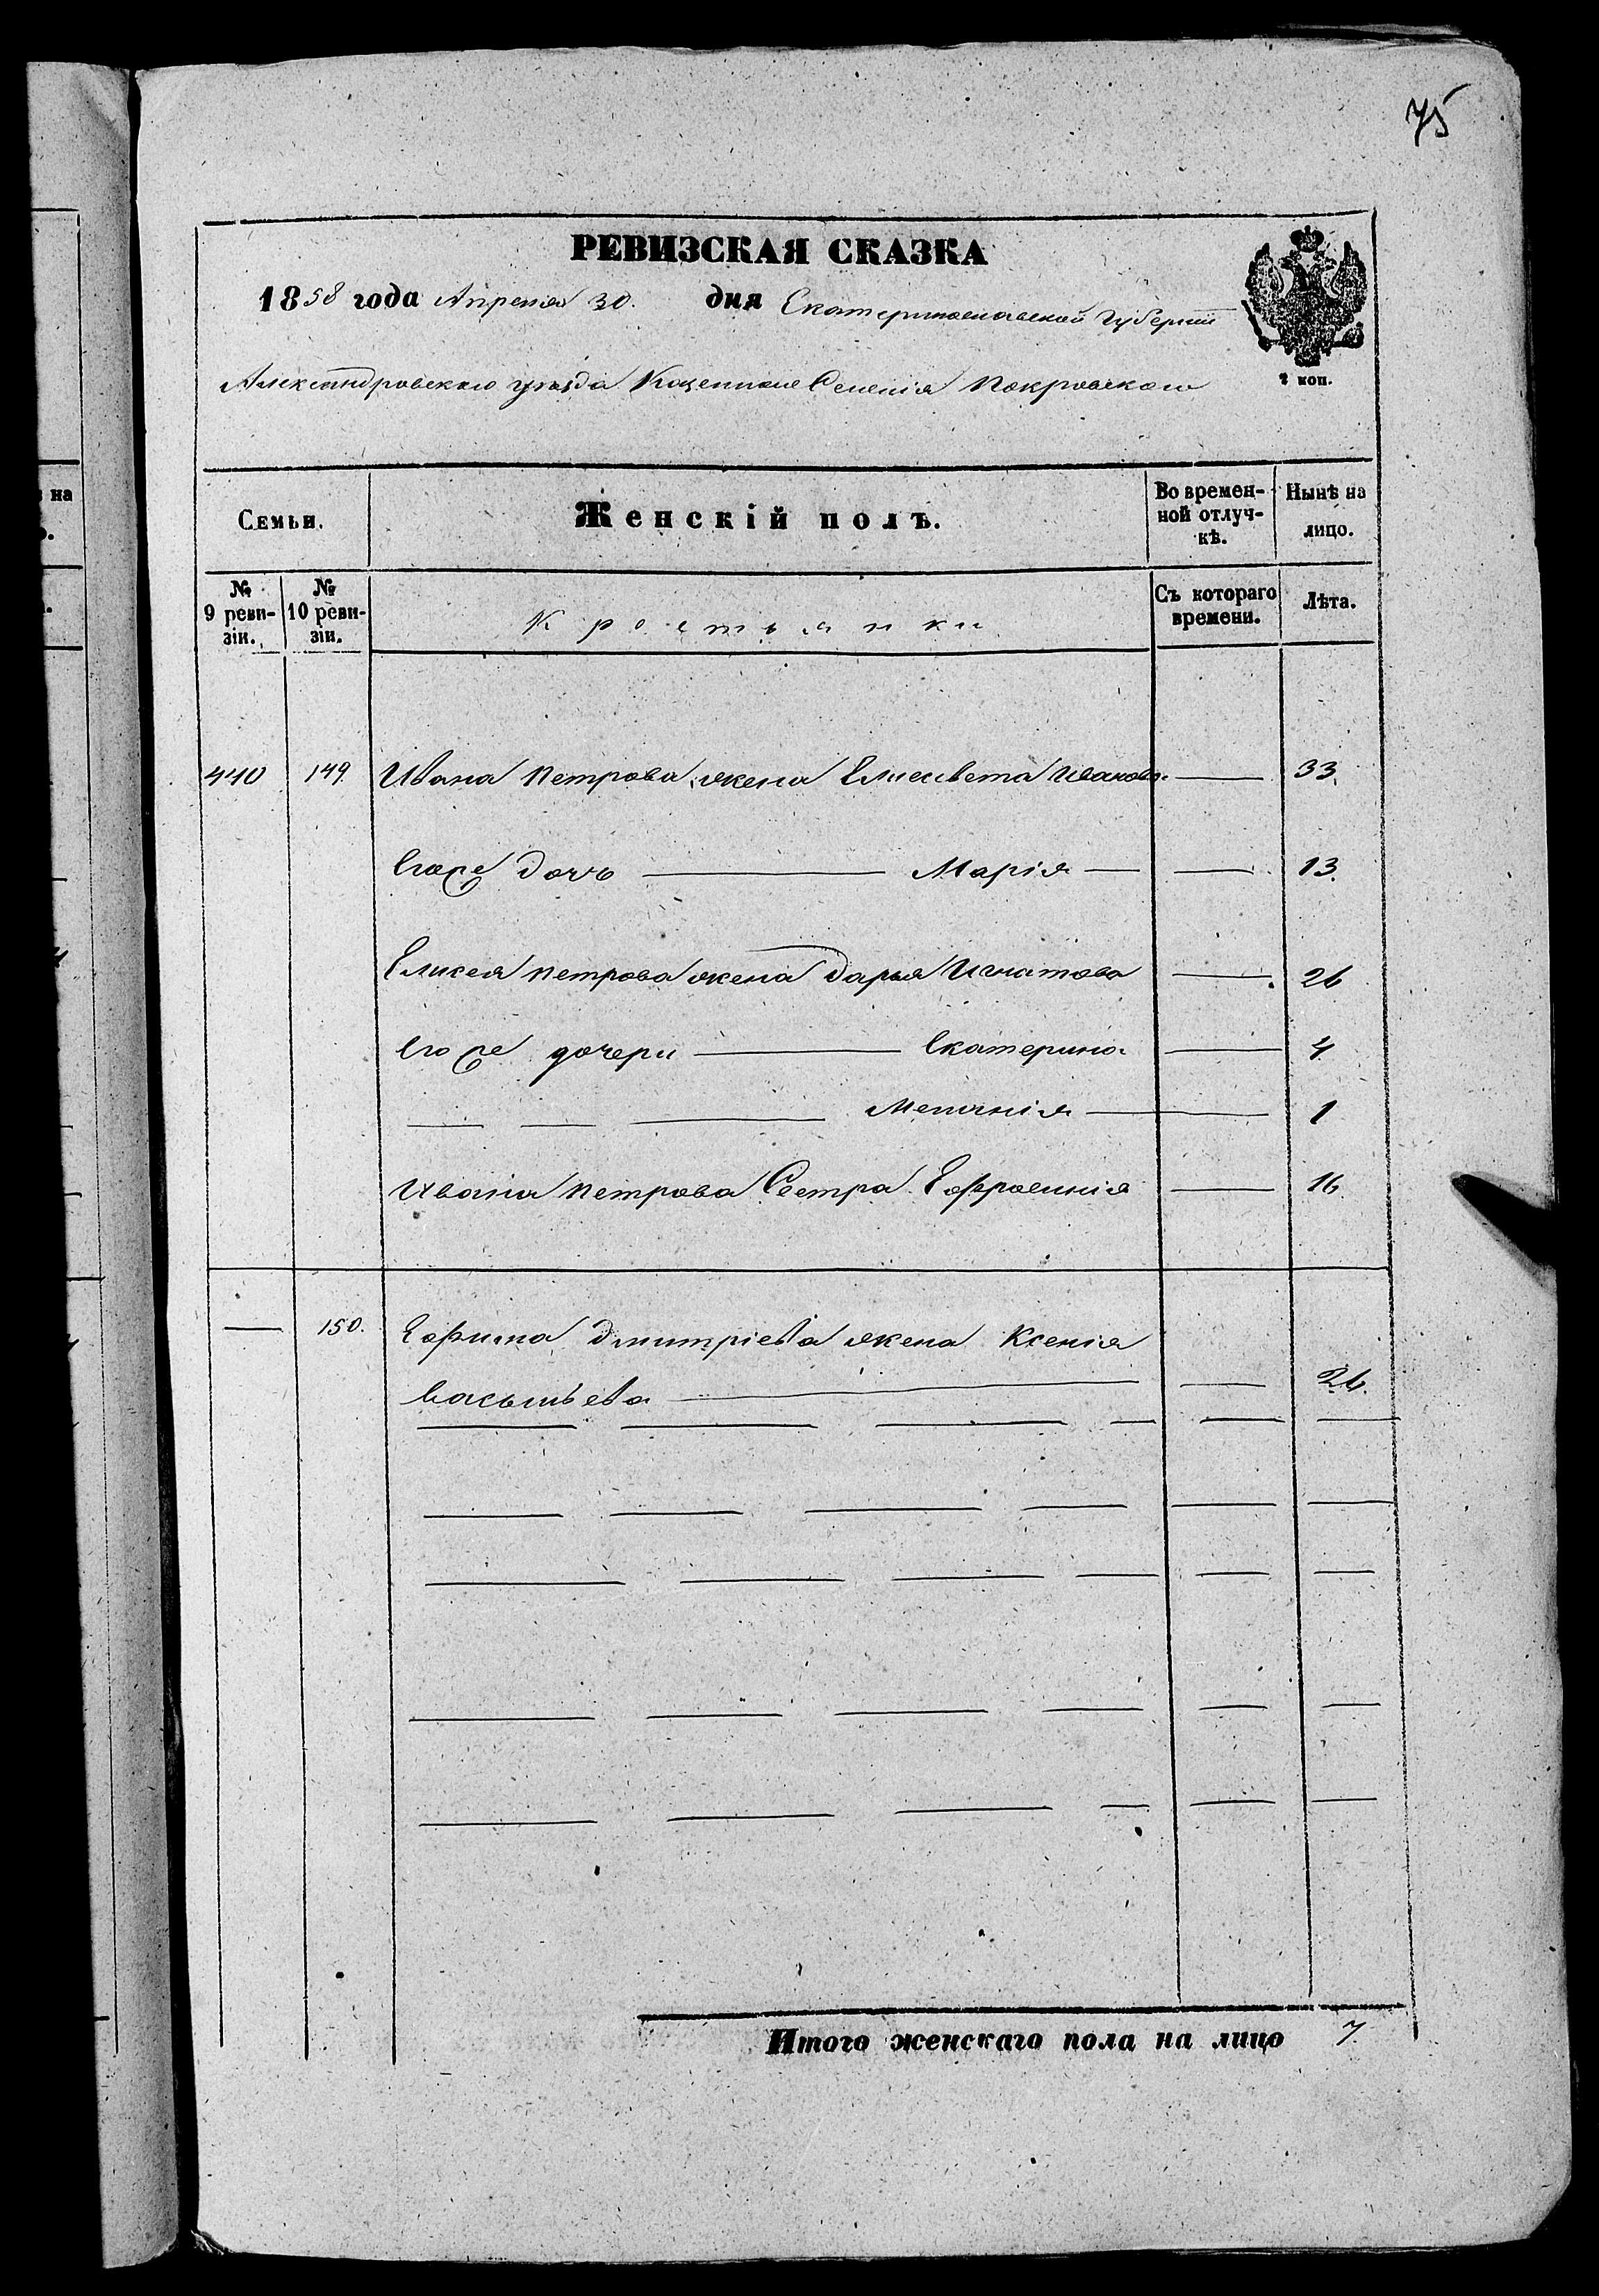 75
РЕВИЗСКАЯ СКАЗКА
1858 года Апреля 30. дня Екатеринославской Губернiи
Александровского уезда Казенное Селенiя Покровского
2 коп.
на
Семьи.
Женскiй полъ.
Во времен-
ной отлуч-
кѣ.
Нынѣ на
лицо.
№
9 реви-
зiи.
№
10 реви-
зiи.
Крестьянки
Съ котораго
времени.
Лѣта.
440 149. Ивана Петрова жена Елисавета Иванова — 33.
Егоже дочь — Марiя — — 13.
Елисея Петрова жена Дарья Игнатова — 26
Егоже дочери — Екатерина — 4
— — — Меланiя — 1
Ивана Петрова Сестра Ефросинiя — 16
— 150. Ефима Дмитрiева жена Ксенiя
Васильева — — 26.
Итого женскаго пола на лицо 7.